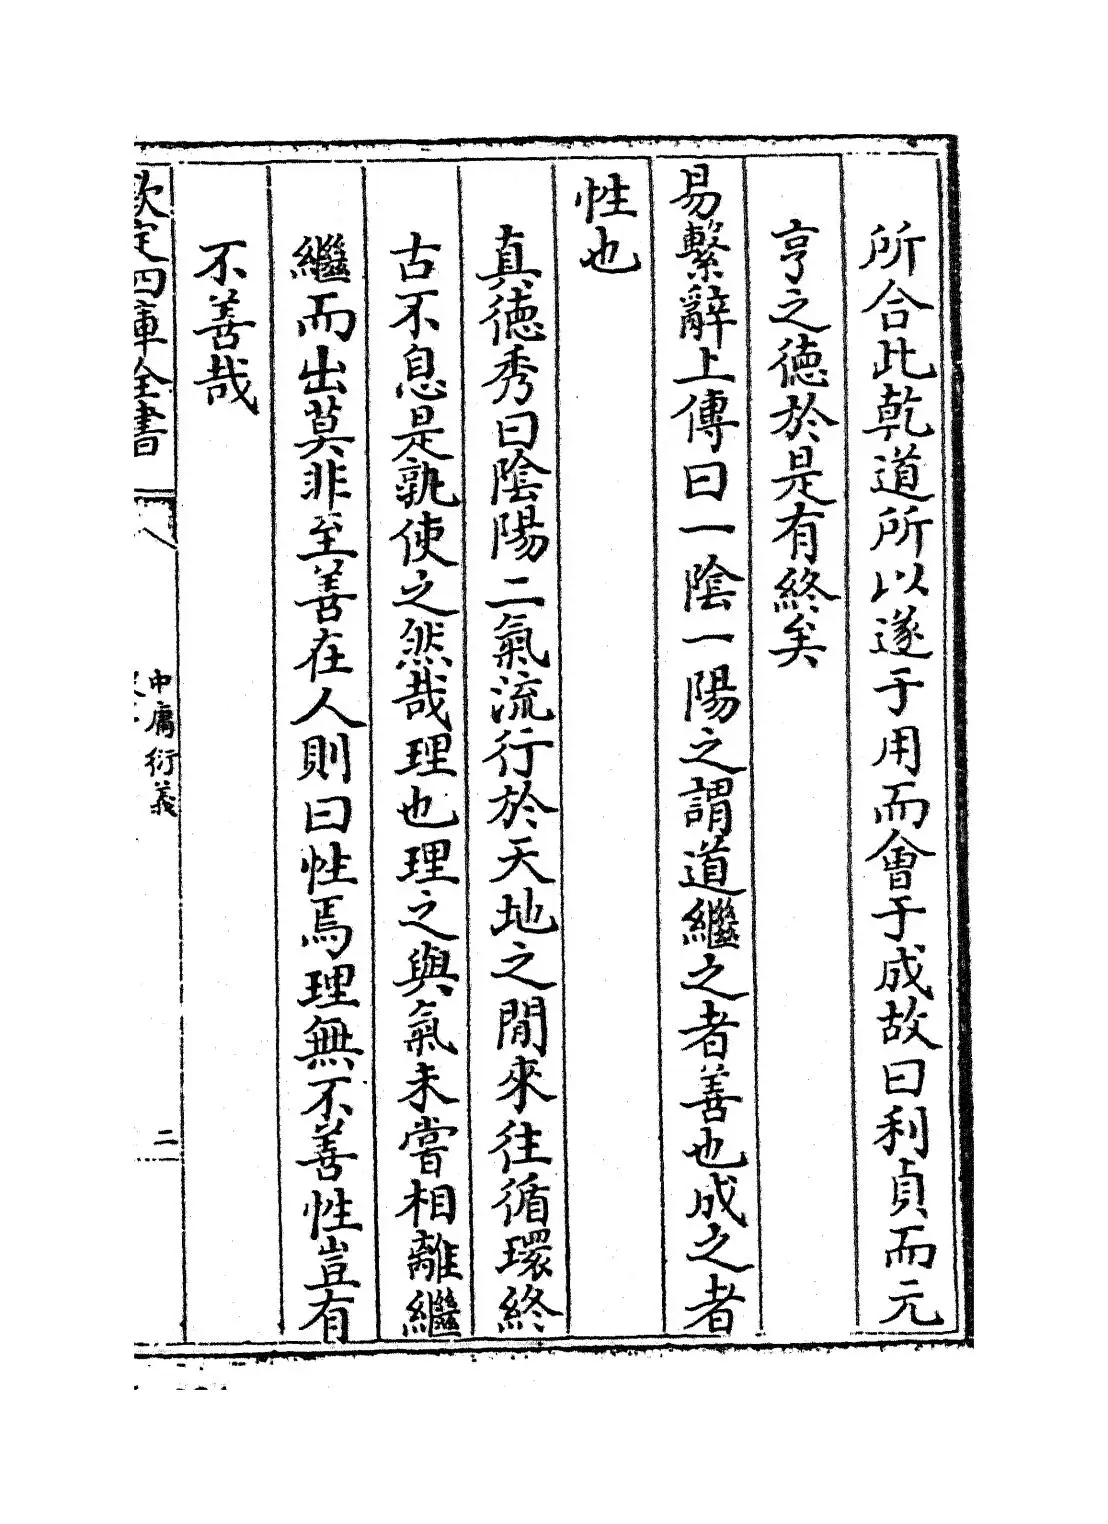 所合此乾道所以遂于用而會于成故曰利貞而元
亨之德於是有終矣
易繫辭上傳曰一陰一陽之謂道繼之者善也成之者
性也
真德秀曰陰陽二氣流行於天地之間來往循環終
古不息是孰使之然哉理也理之與氣未嘗相離繼
繼而出莫非至善在人則曰性焉理無不善性豈有
不善哉
欽定四庫全書
中庸衍義
二